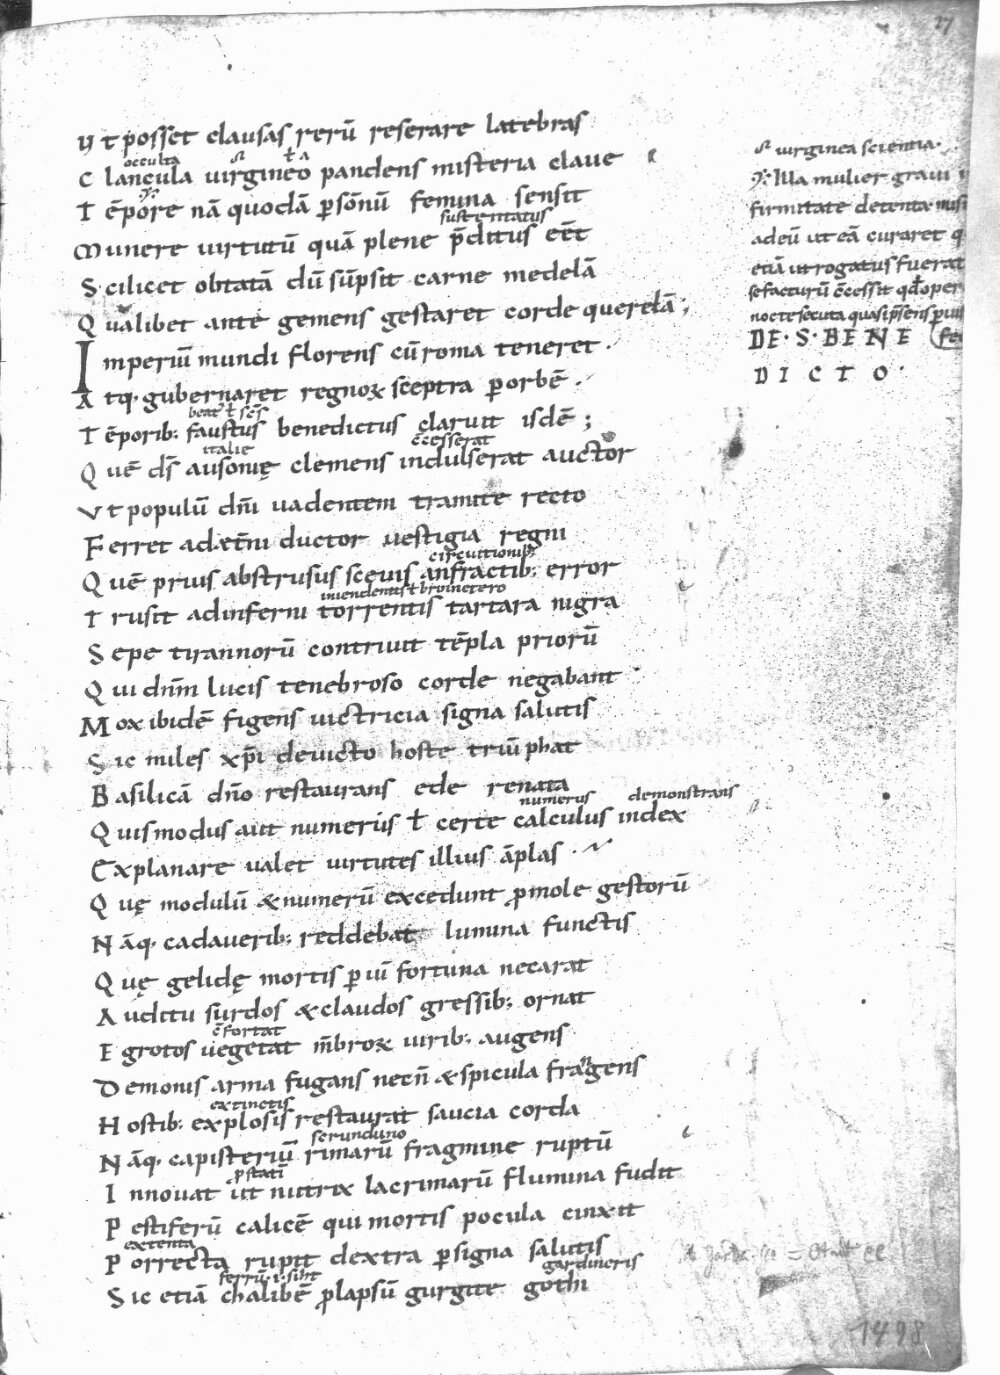 27
Ut posset clausas rerū reserare latebras
occulta
Clancula virgineo pandens misteria claue
Tēpore nā quodā psōnū femina sensit
sustentatus
Munere uirtutū quā plene p̄ditus eēt
Scilicet obtatā dū sūpsit carne medelā
Qualibet ante gemens gestaret corde querelā;
Imperiū mundi florens cū roma teneret.
Atq. gubernaret regnoꝝ sceptra p orbē.
Tēporib; faustus benedictus claruit isdē;
italie c̄cesserat
Quē ds̄ ausonię clemens indulserat auctor
Vt populū dn̄i uadentem tramite recto
Ferret ad ęt̄ni ductor uestigia regni
circuitionib;
Quē prius abstrusus sceuis anfractib; error
Trusit ad inferni torrentis tartara nigra
Sepe tirannorū contriuit tēpla priorū
Qui dnm̄ lucis tenebroso corde negabant
Mox ibidē figens uictricia signa salutis
Sic miles xp̄i deuicto hoste triūphat
Basilicā dn̄o restaurans ede renata
numerus demonstrans
Quis modus aut numerus ł certe calculus index
Explanare ualet uirtutes illius āplas.
Quę modulū & numerū excedunt p mole gestorū
Nāq. cadauerib; reddebat lumina functis
Quę gelidę mortis p uī fortuna necarat
Auditu surdos & claudos gressib; ornat
c̄fortat
Egrotos uegetat m̄broꝝ uirib; augens
Demonis arma fugans necn̄ & spicula frangens
extinctis
Hostib; explosis restaurat saucia corda
Nāq. capisteriū rimarū fragmine ruptū
Innouat ut nutrix lacrimarū flumina fudit
Pestiferū calicē qui mortis pocula cinxit
extenta
Porrecta rupit dextra p signa salutis
Sic etiā chalibē plapsū gurgite gothi
uirginea scientia.
Illa mulier graui
firmitate detenta misi
ad eū ut eā curaret q
etiā ut rogatus fuerat
se facturū c̄cessit qd oper
nocte secuta quasi psens
DE. S. BENE
DICTO.
1498